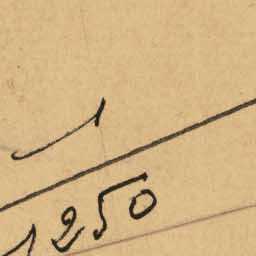 1
1250